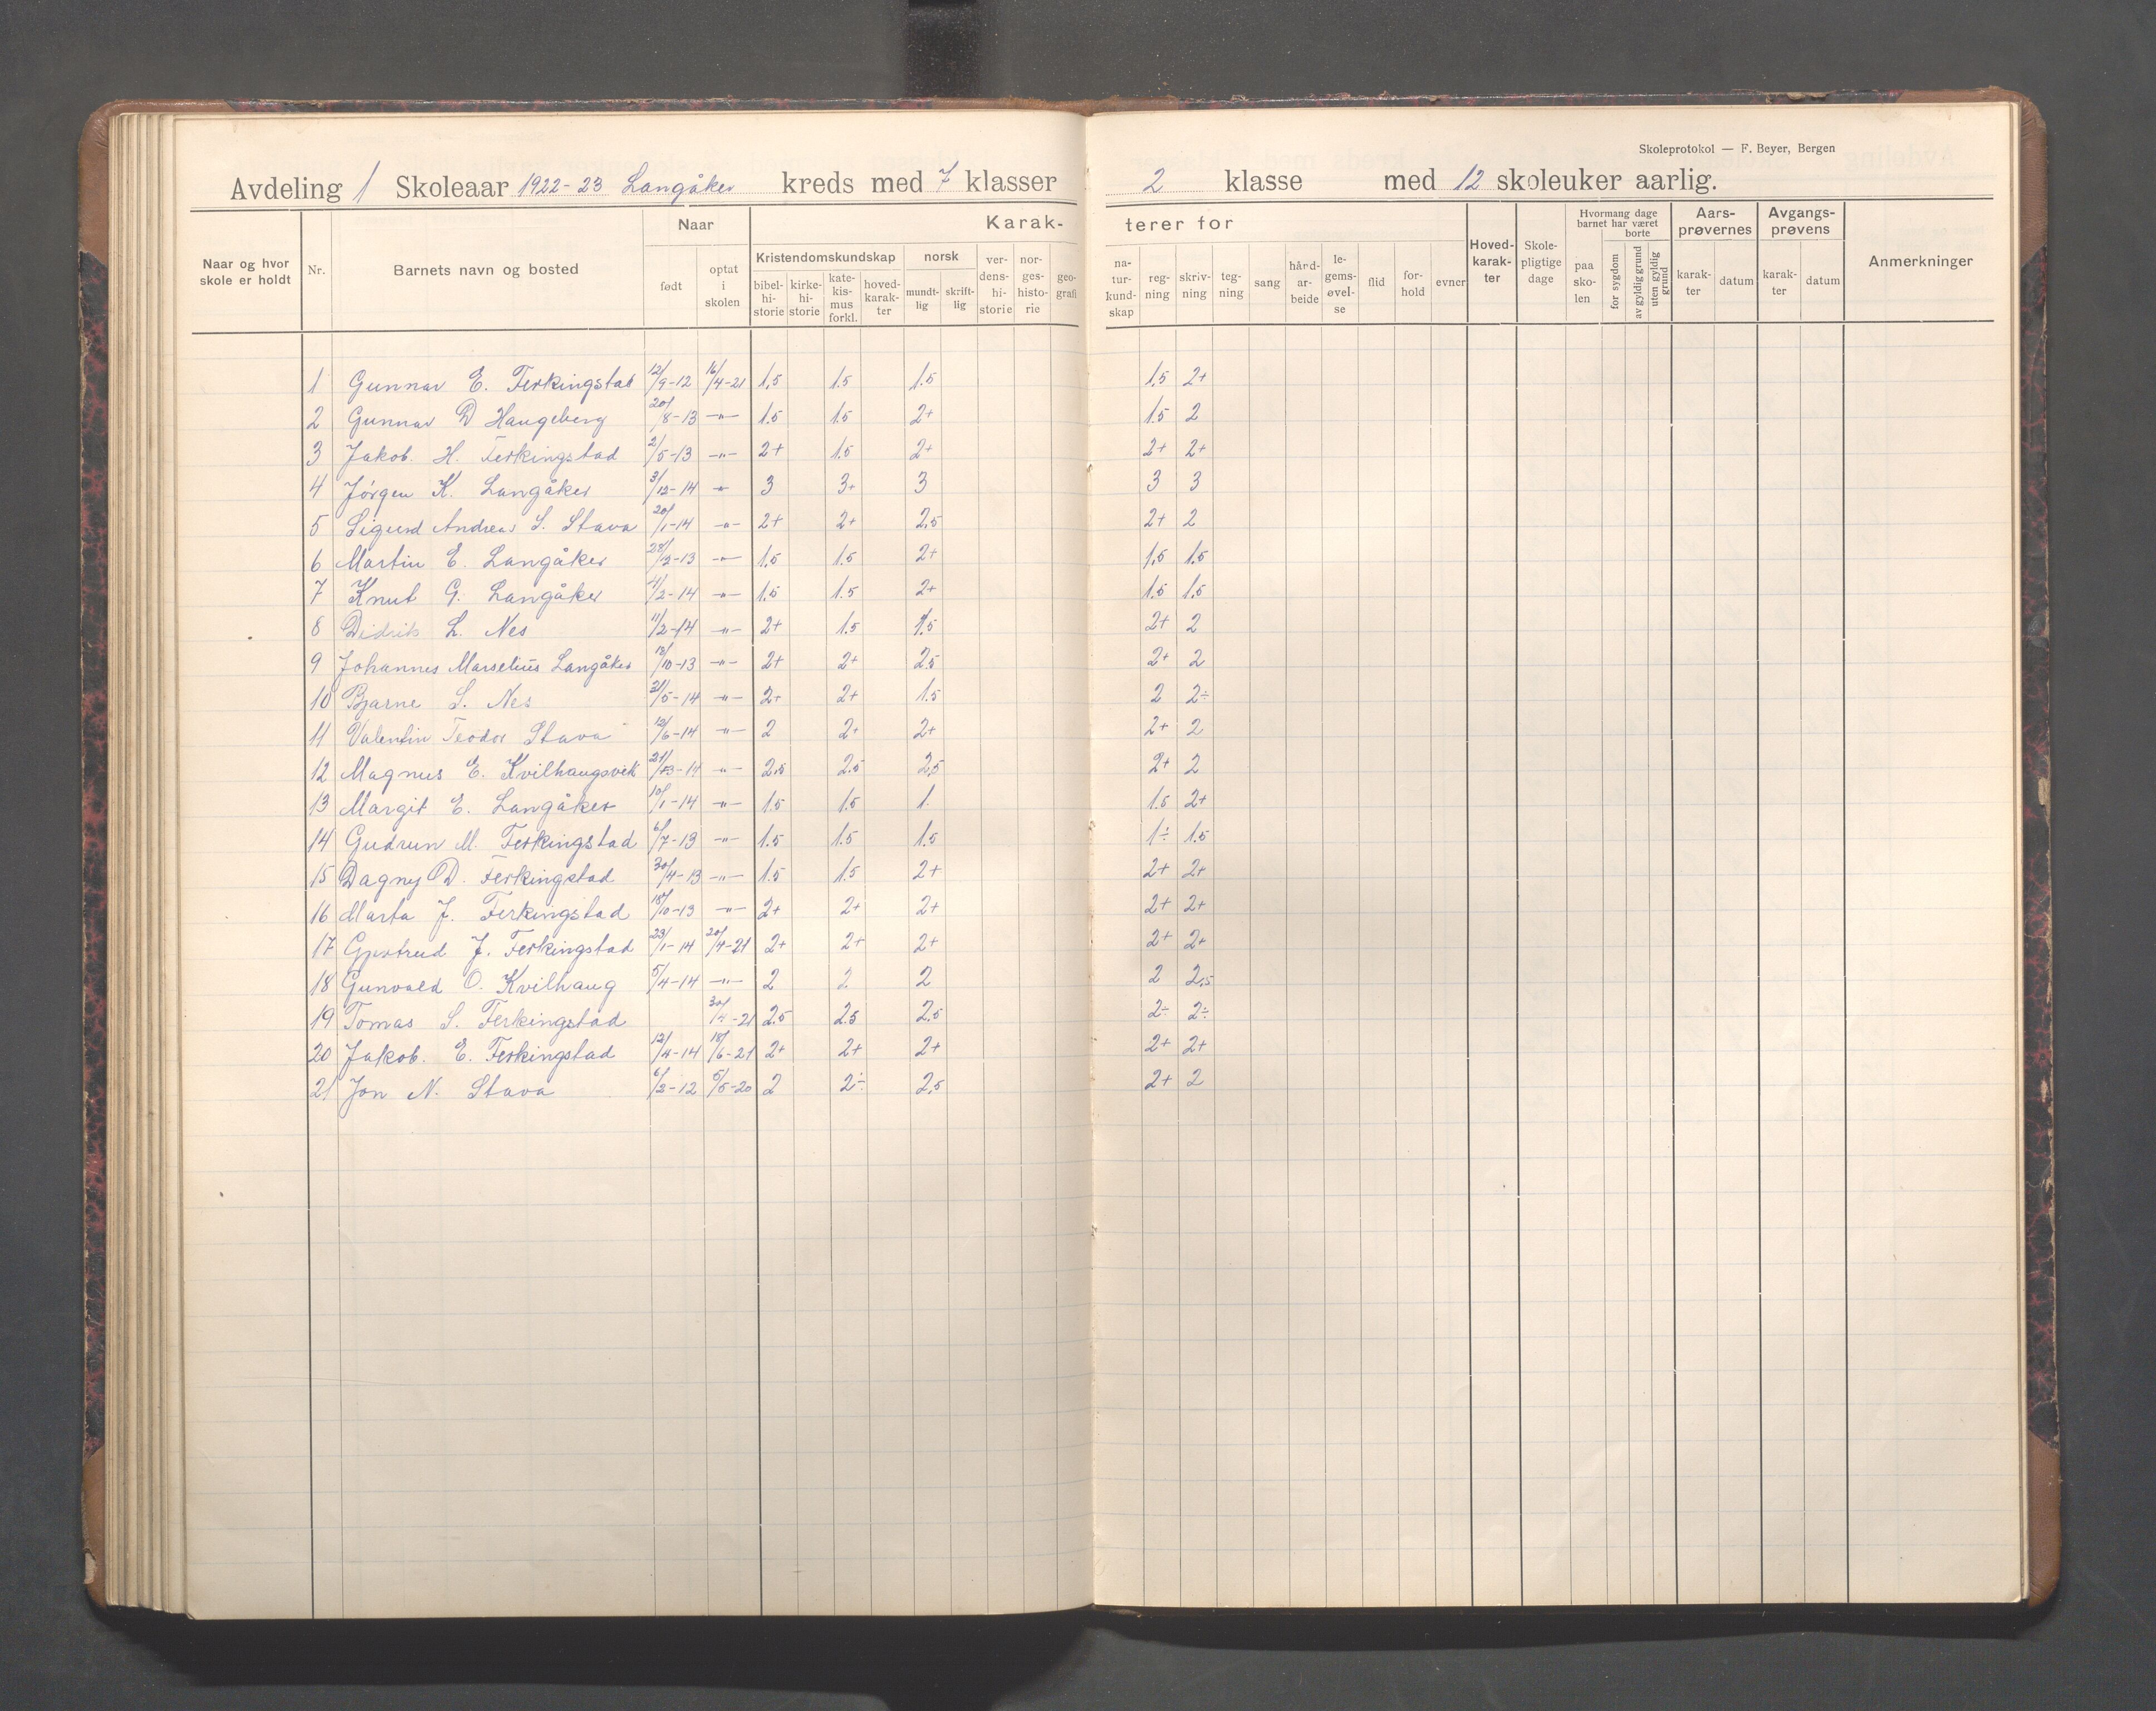 Skoleprotokol — F. Beyer, Bergen
Avdeling 1 Skoleaar 1922-23 Langåker kreds med 7 klasser 2 klasse med 12 skoleuker aarlig.
Naar og hvor skole er holdt Nr. Barnets navn og bosted Naar født optat i skolen Karakterer for Kristendomskundskap bibelhistorie kirkehistorie katekismus forkl. hovedkarakter norsk mundtlig skriftlig verdenshistorie norgeshistorie geografi naturkundskap regning skrivning tegning sang hårdarbeide legemsøvelse flid forhold evner Hovedkarakter Skolepligtige dage Hvormang dage barnet har været paa skolen borte for sygdom av gyldig grund uten gyldig grund Aarsprøvernes karakter datum Avgangsprøvens karakter datum Anmerkninger
1 Gunnar E. Ferkingstad 12/9-12 16/4-21 1,5 1.5 1.5 1,5 2+
2 Gunnar D Haugeberg 20/8-13 -"- 1.5 1.5 2+ 1.5 2
3 Jakob. H. Ferkingstad 2/5-13 -"- 2+ 1.5 2+ 2+ 2+
4 Jörgen K. Langåker 3/12-14 -"- 3 3+ 3 3 3
5 Sigurd Andreas S. Stava 20/1-14 -"- 2+ 2+ 2,5 2+ 2
6 Martin E. Langåker 28/12-13 -"- 1.5 1.5 2+ 1,5 1.5
7 Knut G. Langåker 4/2-14 -"- 1.5 1.5 2+ 1.5 1,5
8 Didrik L. Nes 11/2-14 -"- 2+ 1.5 1.5 2+ 2
9 Johannes Marselius Langåker 13/10-13 -"- 2+ 2+ 2.5 2+ 2
10 Bjarne S. Nes 21/5-14 -"- 2+ 2+ 1.5 2 2÷
11 Valentin Teodor Stava 12/6-14 -"- 2 2+ 2+ 2+ 2
12 Magnus E. Kvilhaugsvik -14 -"- 2.5 2.5 2,5 2+ 2
13 Margit E. Langåker 10/1-14 -"- 1.5 1.5 1. 1.5 2+
14 Gudrun M. Ferkingstad 6/7-13 -"- 1.5 1.5 1.5 1÷ 1.5
15 Dagny D. Ferkingstad 30/4-13 -"- 1.5 1.5 2+ 2+ 2+
16 Marta J. Ferkingstad 18/10-13 -"- 2+ 2+ 2+ 2+ 2+
17 Gjertrud J. Ferkingstad 23/1-14 20/4-21 2+ 2+ 2+ 2+ 2+
18 Gunvald O. Kvilhaug 5/4-14 -"- 2 2 2 2 2,5
19 Tomas S. Ferkingstad 30/4-21 2.5 2.5 2.5 2÷ 2÷
20 Jakob. E. Ferkingstad 12/4-14 18/6-21 2+ 2+ 2+ 2+ 2+
21 Jon N. Stava 6/2-12 5/5-20 2 2÷ 2,5 2+ 2